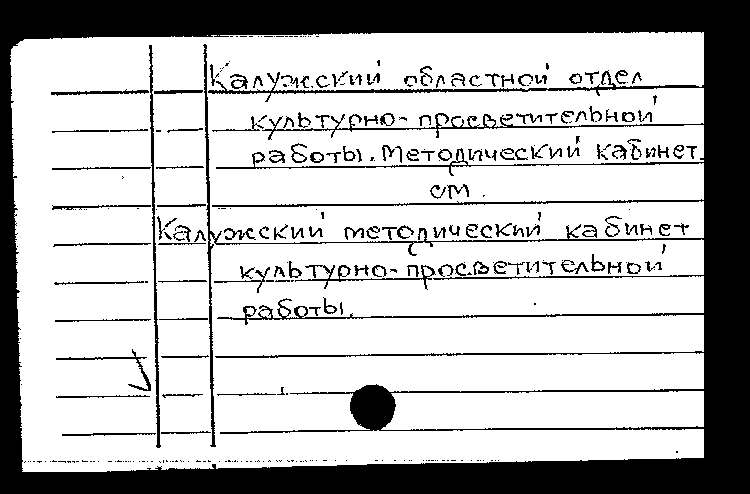 Калужский областной отдел
культурно-просветительной
работы. Методический кабинет
см.
Калужский методический кабинет
культурно-просветительной
работы.